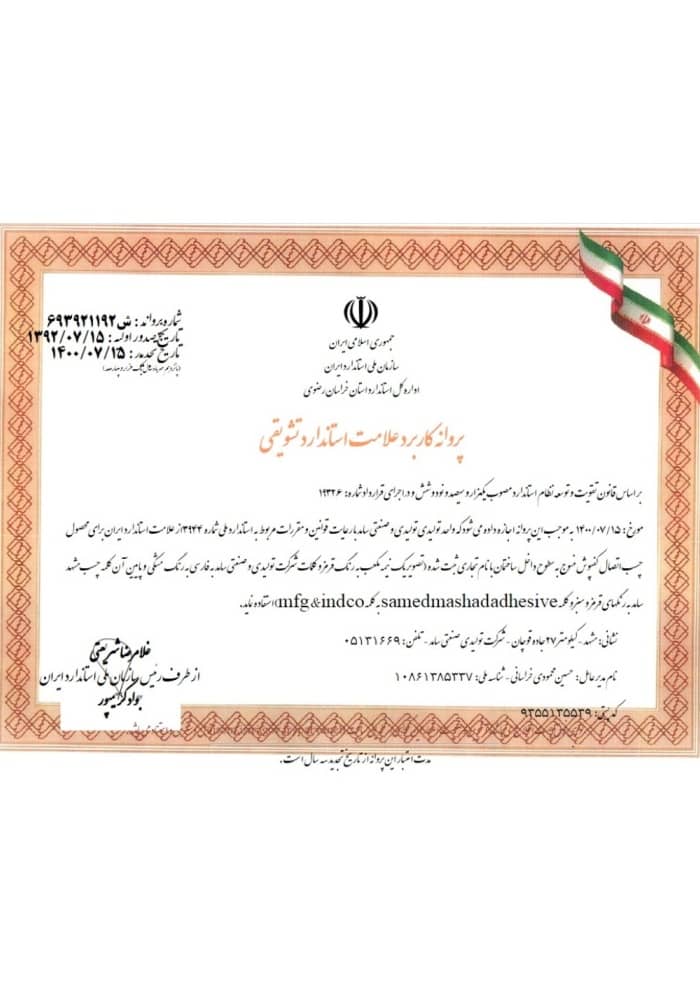 جمهوری اسلامی ایران
سازمان ملی استاندارد ایران
اداره کل استاندارد استان خراسان رضوی
شماره پروانه : ش ۶۹۳۹۲۱۱۹۲
تاریخ صدور اولیه : ۱۳۹۲/۰۷/۱۵
تاریخ تمدید : ۱۴۰۰/۰۷/۱۵
پروانه کاربرد علامت استاندارد تشویقی
بر اساس قانون تقویت و توسعه نظام استاندارد مصوب یکهزار و سیصد و نود و شش و در اجرای قرارداد شماره : ۱۹۳۲۶
مورخ : ۱۴۰۰/۰۷/۱۵ به موجب این پروانه اجازه داده می شود که واحد تولیدی تولیدی و صنعتی سامد با رعایت قوانین و مقررات مربوط به استاندارد ملی شماره ۳۹۴۴ از علامت استاندارد ایران برای محصول
چسب اتصال کفپوش منسوج به سطوح داخل ساختمان با نام تجاری ثبت شده (تصویر یک نیم مکعب به رنگ قرمز و کلمات شرکت تولیدی و صنعتی سامد به فارسی به رنگ مشکی و پایین آن کلمه چسب مشهد
سامد به رنگهای قرمز و سبز و کلمه samedmashadadhesive به کلمه mfg&indco) استفاده نماید.
نشانی : مشهد - کیلومتر ۲۷ جاده قوچان - شرکت تولیدی صنعتی سامد - تلفن : ۰۵۱۳۱۶۶۹
نام مدیر عامل : حسین محمودی خراسانی - شناسه ملی : ۱۰۸۶۱۳۸۵۳۳۷
کد پستی : ۹۳۵۵۱۳۵۵۳۹
غلامرضا شریعتی
از طرف رئیس سازمان ملی استاندارد ایران
جواد کریمپور
مدت اعتبار این پروانه از تاریخ تمدید سه سال است.